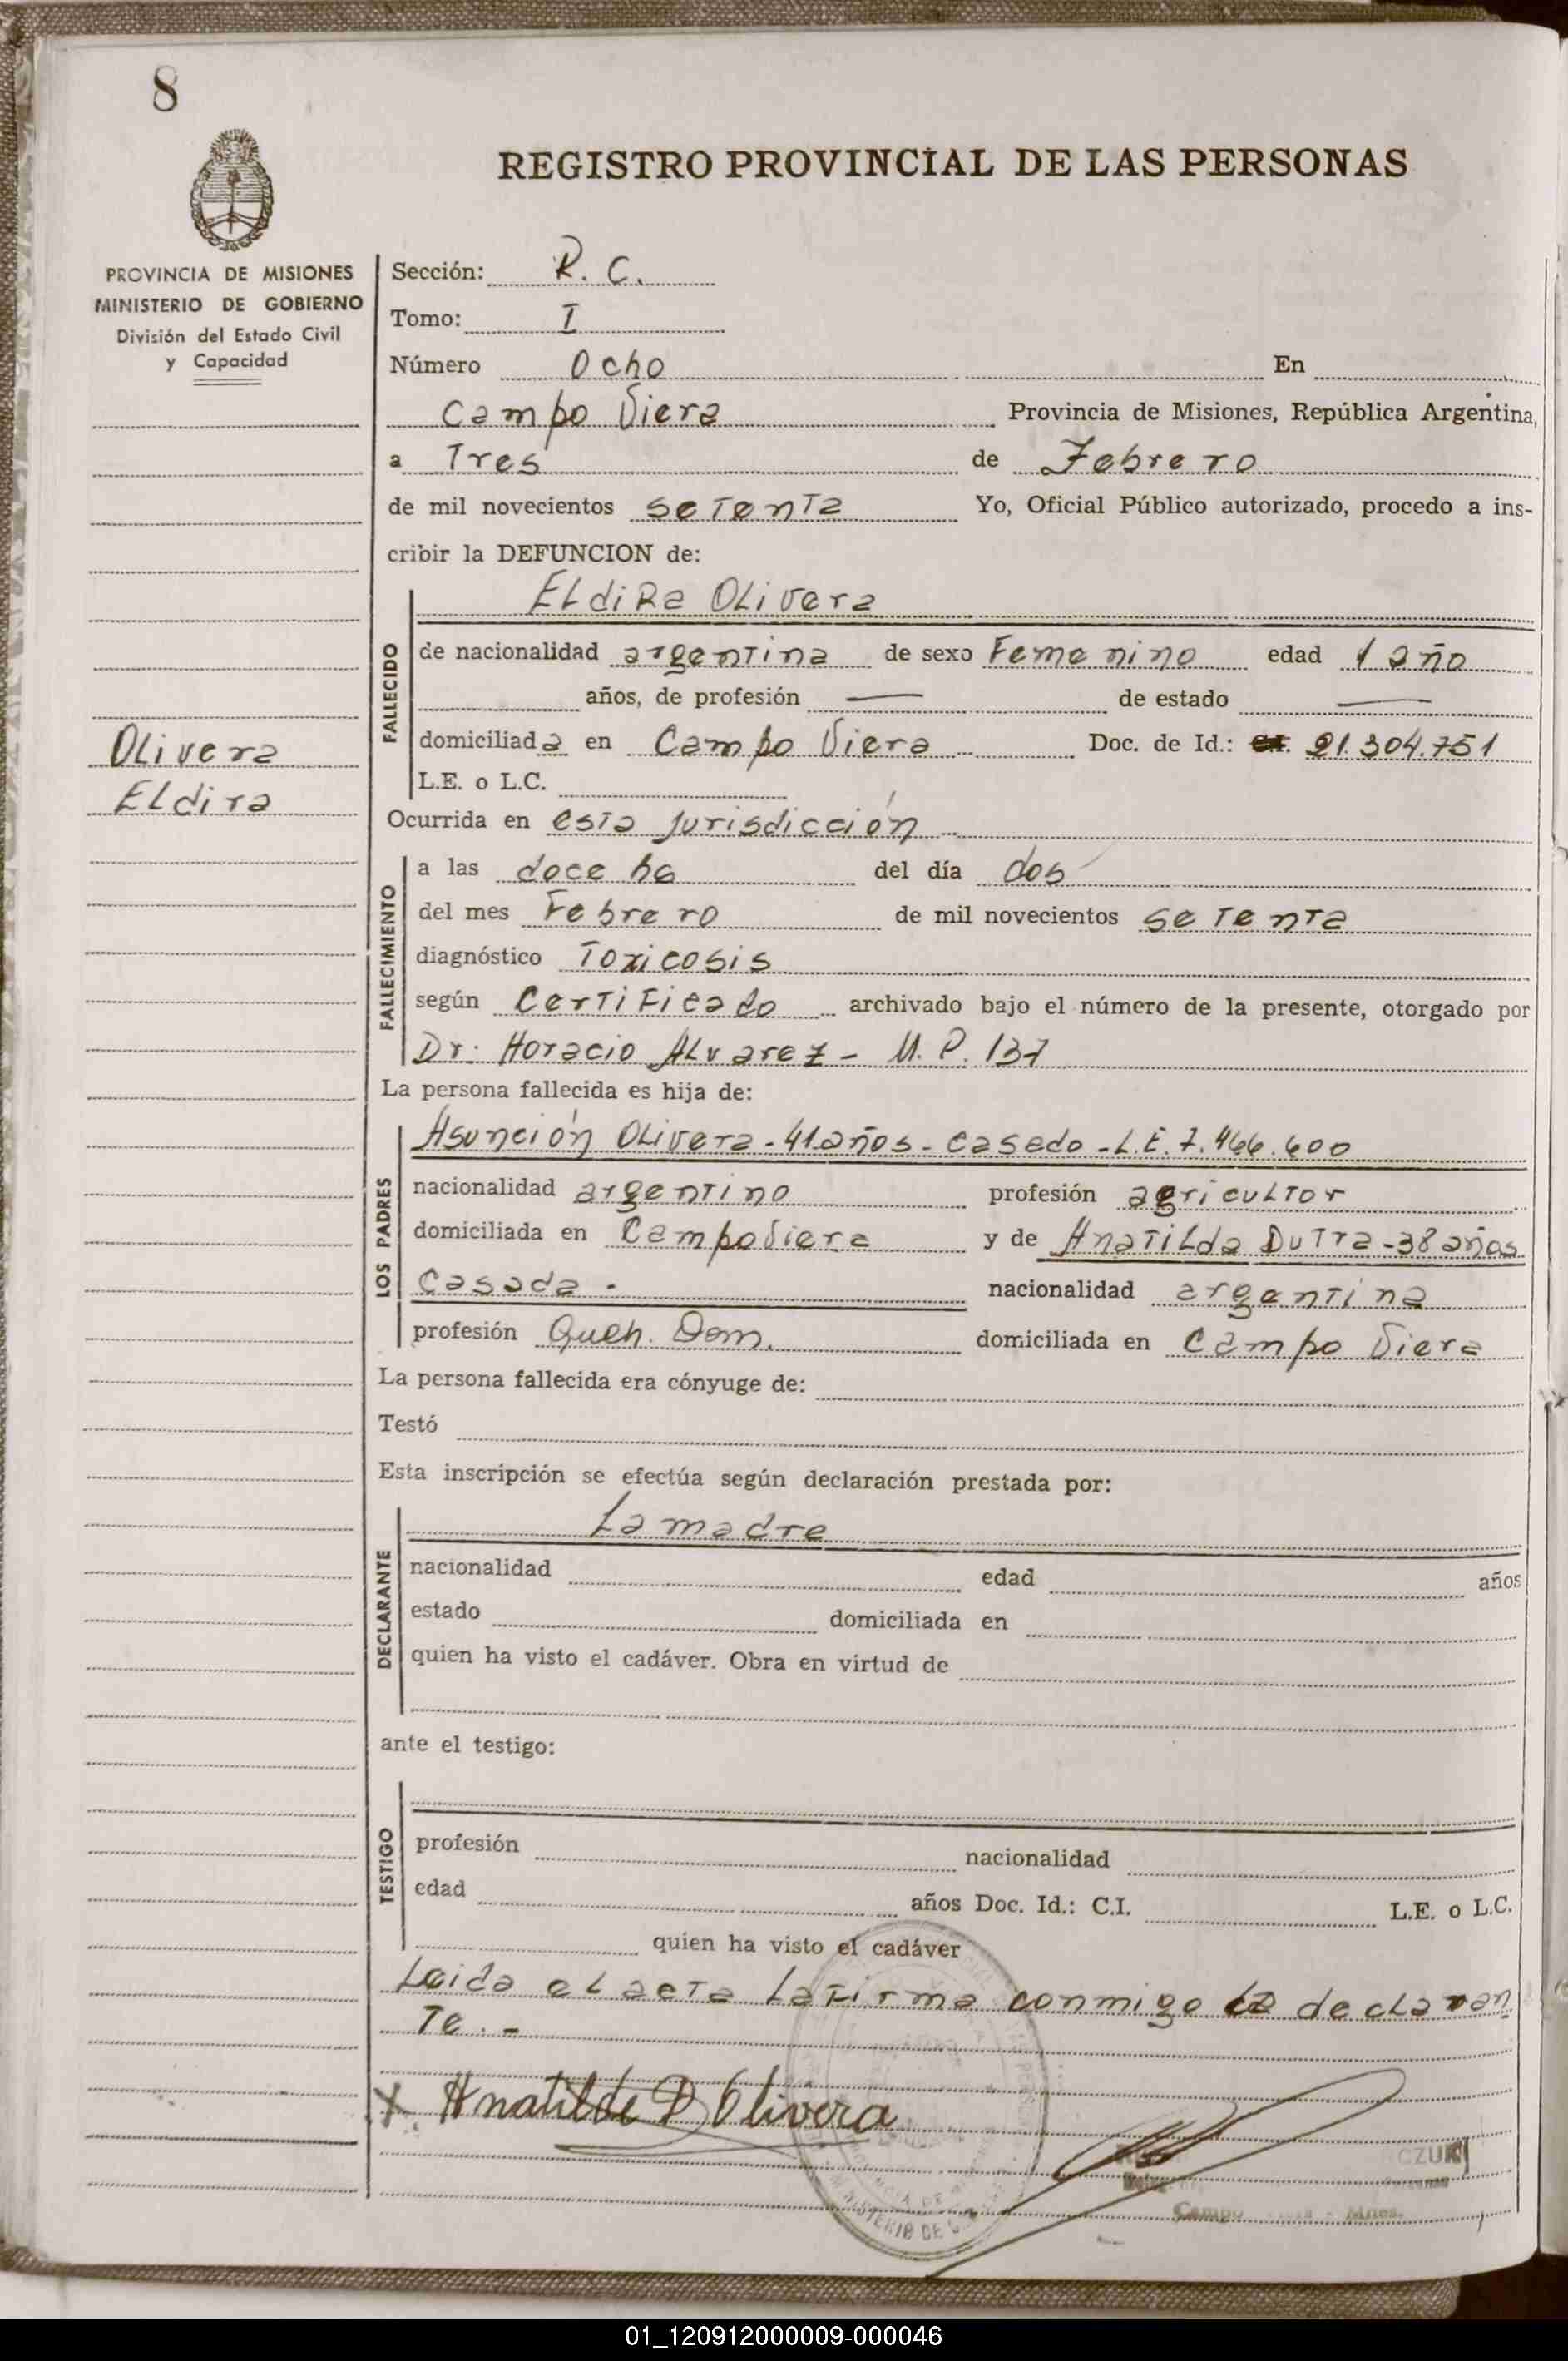 8
REGISTRO PROVINCIAL DE LAS PERSONAS
PROVINCIA DE MISIONES
MINISTERIO DE GOBIERNO
División del Estado Civil
y Capacidad
Sección: R. C.
Tomo: I
Número Ocho En
Campo Viera Provincia de Misiones, República Argentina,
a Tres de Febrero
de mil novecientos setenta Yo, Oficial Público autorizado, procedo a ins-
cribir la DEFUNCION de:
Eldira Olivera
FALLECIDO
de nacionalidad argentina de sexo Femenino edad 1 año
años, de profesión — de estado —
Olivera
Eldira
domiciliada en Campo Viera Doc. de Id.: 21.304.751
L.E. o L.C.
Ocurrida en esta jurisdicción
FALLECIMIENTO
a las doce hs del día dos
del mes Febrero de mil novecientos setenta
diagnóstico Toxicosis
según Certificado archivado bajo el número de la presente, otorgado por
Dr: Horacio Alvarez - M. P. 137
La persona fallecida es hija de:
LOS PADRES
Asunción Olivera - 41 años - Casado - L.E. 7.466.600
nacionalidad argentino profesión agricultor
domiciliada en Campo Viera y de Anatilda Dutra - 38 años
Casada - nacionalidad argentina
profesión Queh. Dom. domiciliada en Campo Viera
La persona fallecida era cónyuge de:
Testó
Esta inscripción se efectúa según declaración prestada por:
DECLARANTE
La madre
nacionalidad edad años
estado domiciliada en
quien ha visto el cadáver. Obra en virtud de
ante el testigo:
TESTIGO
profesión nacionalidad
edad años Doc. Id.: C.I. L.E. o L.C.
quien ha visto el cadáver
Leida el acta la firma conmigo la declaran
Te. -
X Anatilde D Olivera
CZUK
Campo Mnes.
MINISTERIO DE
01_120912000009-000046